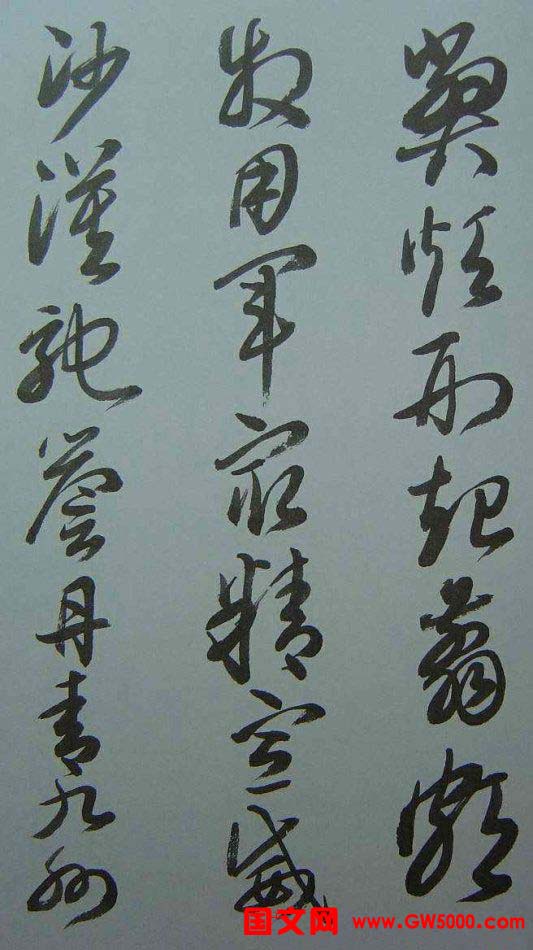 弊烦刑起翦颇
牧用军最精宣威
沙漠驰誉丹青九州
国文网 www.GW5000.com